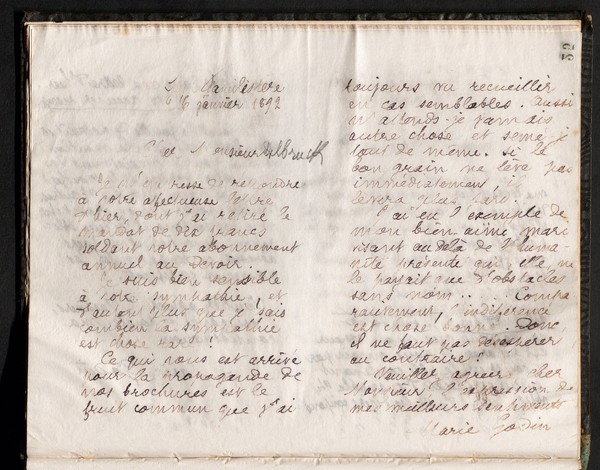 Familistère
16 janvier 1892
Cher Monsieur Delbruck
Je m'empresse de répondre
à votre affectueuse lettre
d'hier, dont j'ai retiré le
mandat de dix francs
soldant votre abonnement
annuel au Devoir.
Je suis bien sensible
à votre sympathie, et
d'autant plus que je sais
combien la sympathie
est chose rare !
Ce qui vous est arrivé
pour la propagande de
nos brochures est le
fruit commun que j'ai
59
toujours vu recueillir
en cas semblables. Aussi
n'attends-je jamais
autre chose et semé-je
tout de même. Si le
bon grain ne lève pas
immédiatement, il
lèvera plus tard.
J'ai eu l'exemple de
mon bien-aimé mari
visant au delà de l'huma-
nité présente qui, elle, ne
le payait que d'obstacles
sans nom . . . . . Compa
rativement, l'indifférence
est chose bonne. Donc,
il ne faut pas désespérer
au contraire !
Veuillez agréer, cher
Monsieur, l'expression de
mes meilleurs sentiments
Marie Godin